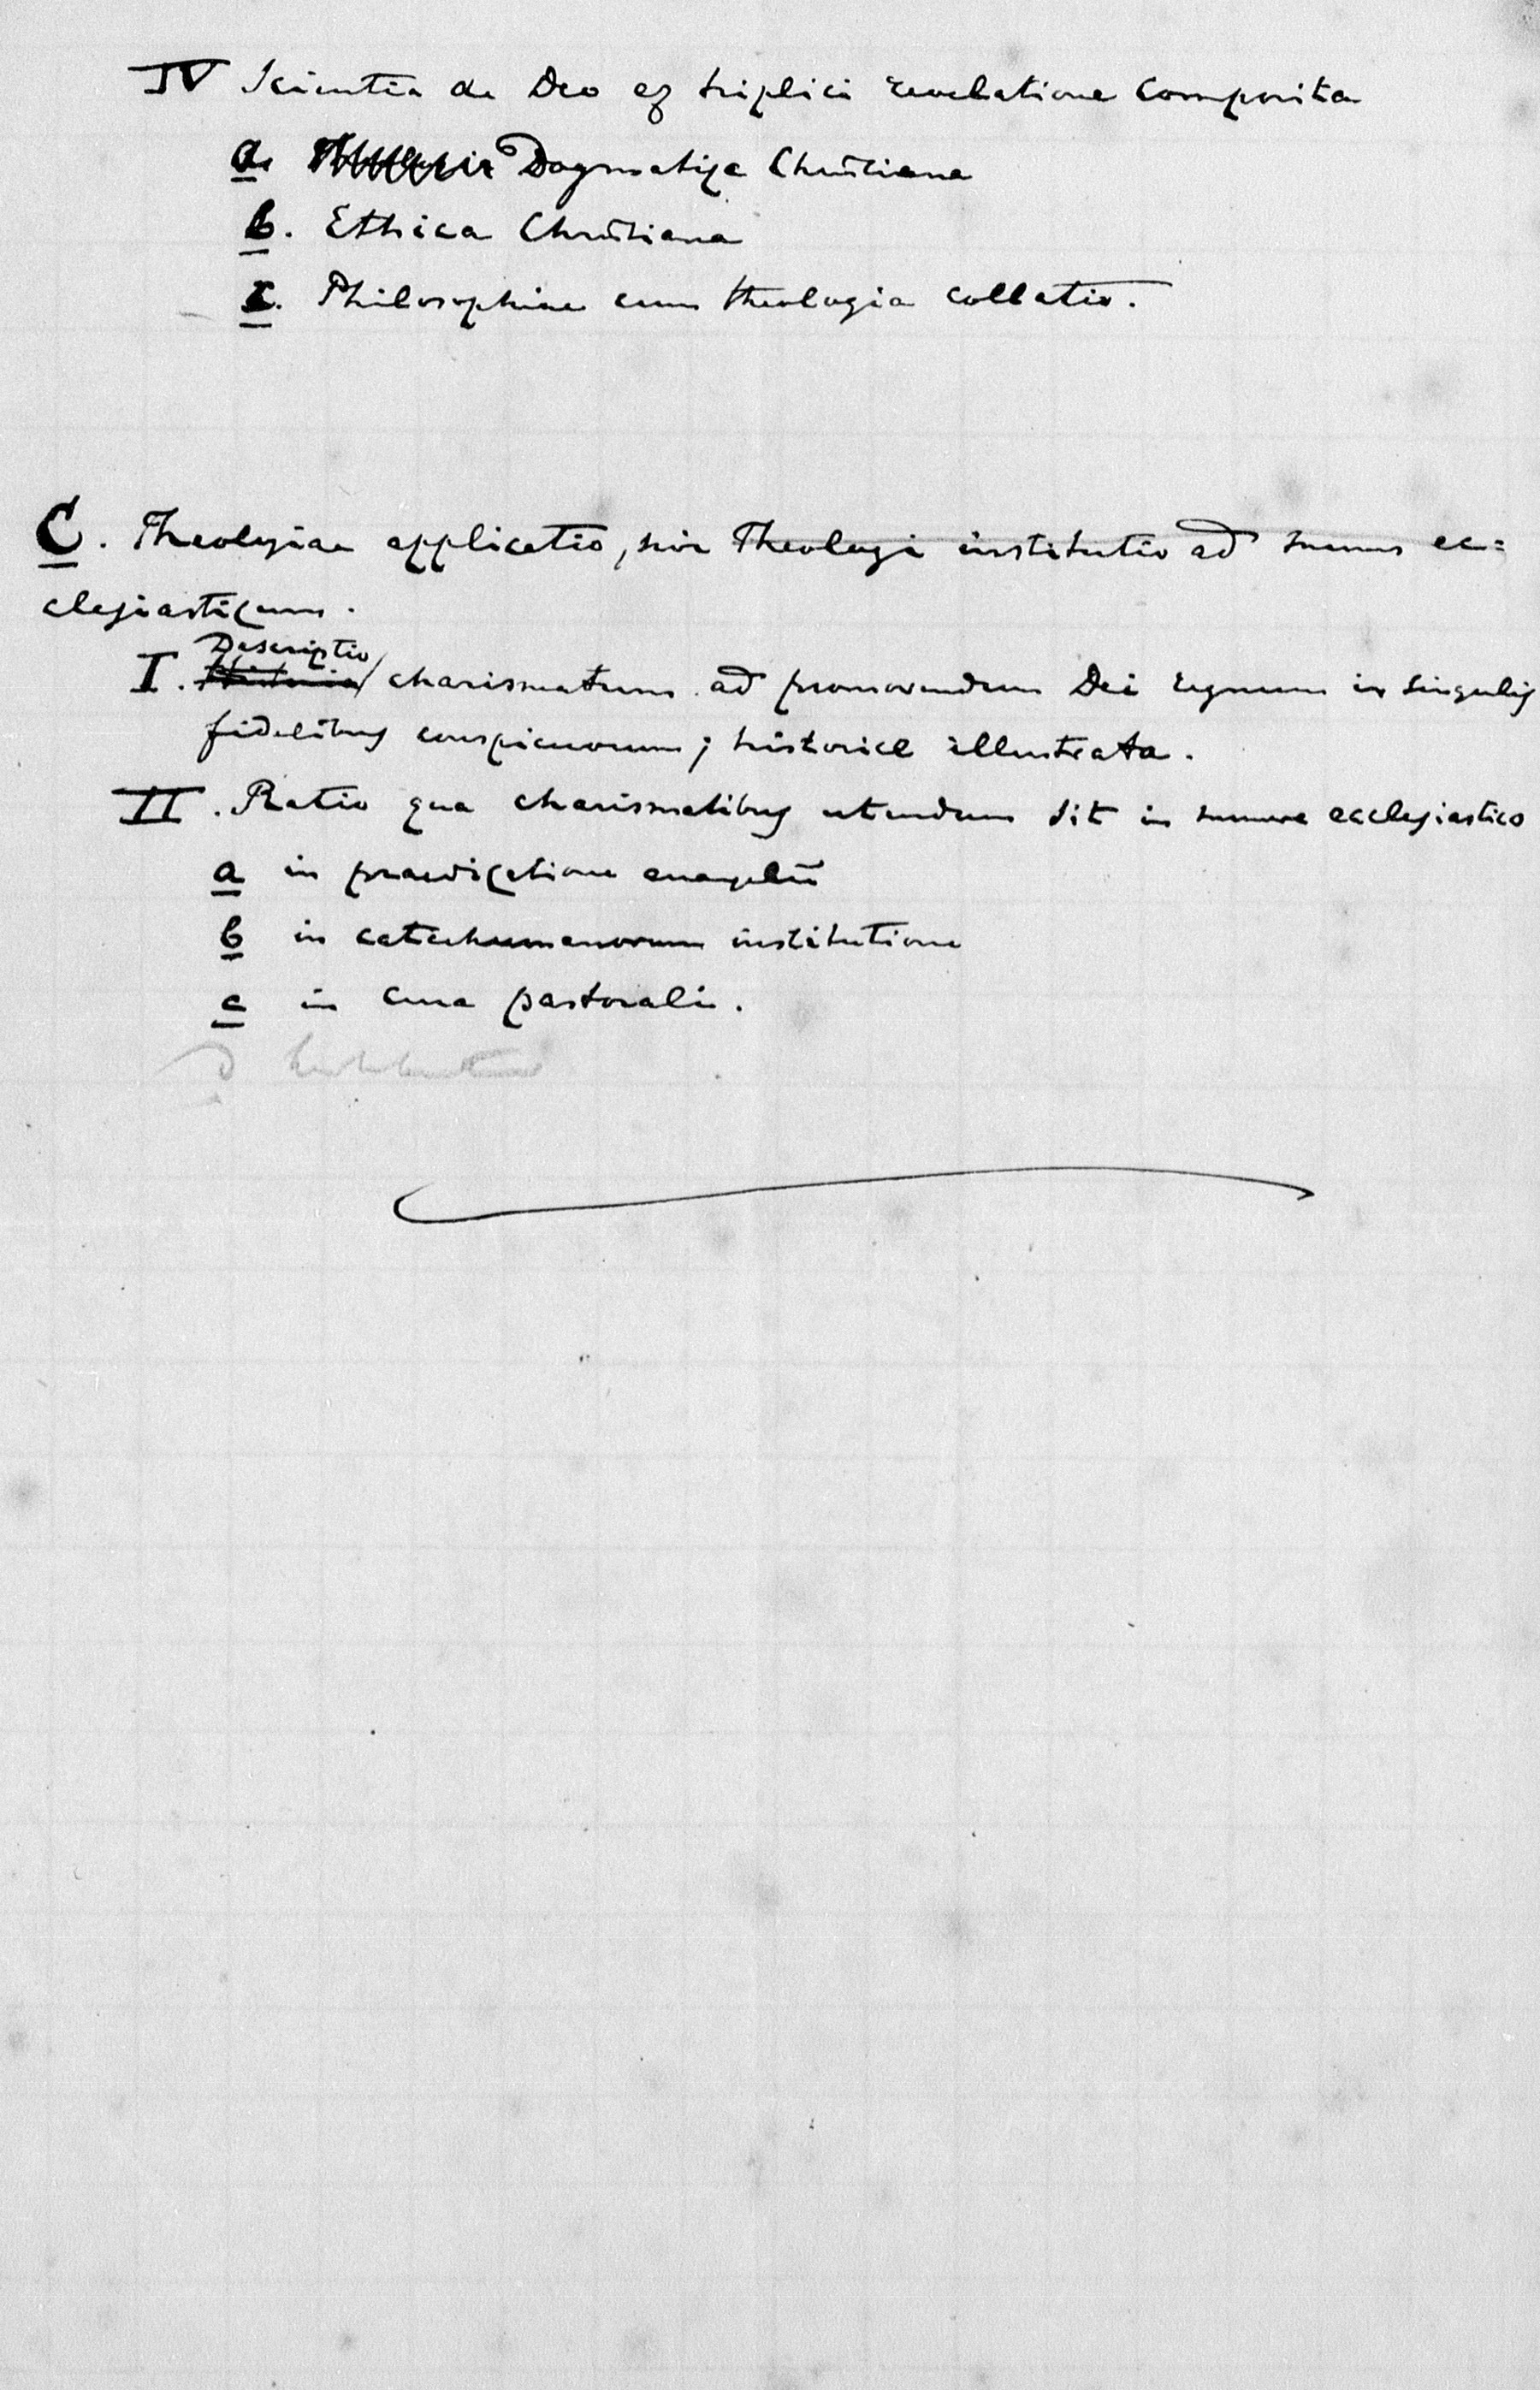 IV Scientia de Deo ex triplici revelatione composita
a. Dogmatica Chrĩstiana
b. Ethica Chrĩstiana
c. Philosophiae cum theologia collatio.
C. Theologiae applicatio, sive Theologi institutio ad munus ec=
clesiasticum.
Descriptio
I. Historia charismatum ad promovendum Dei regnum in singulis
fidelibus conspicuorum; historice illustrata.
II. Ratio qua charismatibus utendum sit in munere ecclesiastico
a in praedicatione evangelii
b in catechumenorum institutione
c in cura pastorali.
d